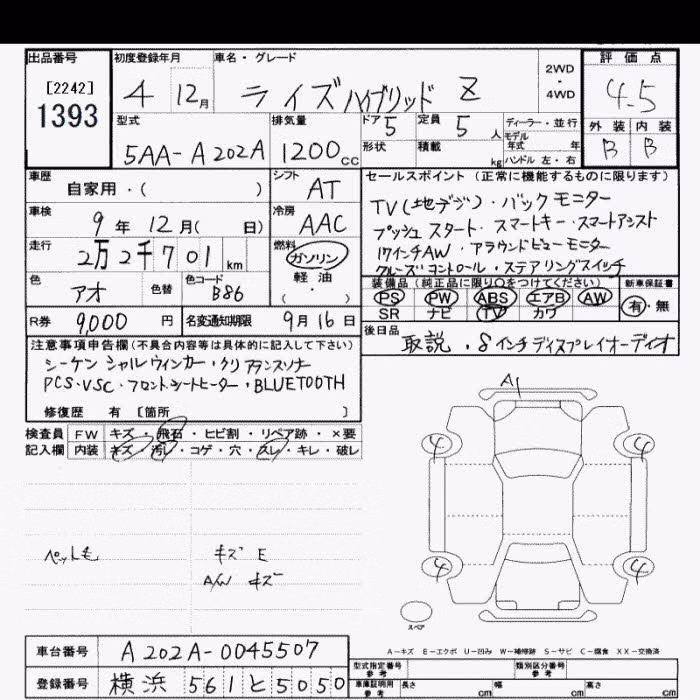 出品番号 初度登録年月 車名・グレード 2WD ・ 4WD 評価点
[2242] 1393 4 12月 ライズ ハイブリッド Z 4.5
型式 排気量 ドア 5 定員 5人 ディーラー・並行 外装 内装
5AA-A202A 1200cc 形状 積載 kg モデル年式 年 ハンドル 左・右 B B
車歴 シフト セールスポイント (正常に機能するものに限ります)
自家用・( ) AT TV(地デジ)・バックモニター
車検 冷房 プッシュスタート・スマートキー・スマートアシスト
9年12月( 日) AAC 17インチAW・アラウンドビューモニター
走行 燃料 クルーズコントロール・ステアリングスイッチ
2万2千701km ガソリン 軽油 ( )
色 色替 色コード 装備品(純正品に限り○をつけてください) 新車保証書
アオ B86 PS PW ABS エアB AW 有・無
SR ナビ TV カワ
R券 9,000円 名変通知期限 9月16日 後日品
取説・8インチディスプレイオーディオ
注意事項申告欄(不具合内容等は具体的に記入して下さい)
シーケンシャルウインカー・クリアランスソナー
PCS・VSC・フロントシートヒーター・BLUETOOTH
修復歴 有 [箇所 ]
検査員 FW キズ・飛石・ヒビ割・リペア跡・×要
記入欄 内装 キズ・汚レ・コゲ・穴・スレ・キレ・破レ
A1
4 4
4 4
ペットも キズ E
A/W キズ
スペア
A-キズ E-エクボ U-凹み W-補修跡 S-サビ C-腐食 XX-交換済
車台番号 A202A-0045507 型式指定番号 参考 類別区分番号 参考
登録番号 横浜 561 と 5050 車庫証明用 参考 長さ cm 幅 cm 高さ cm